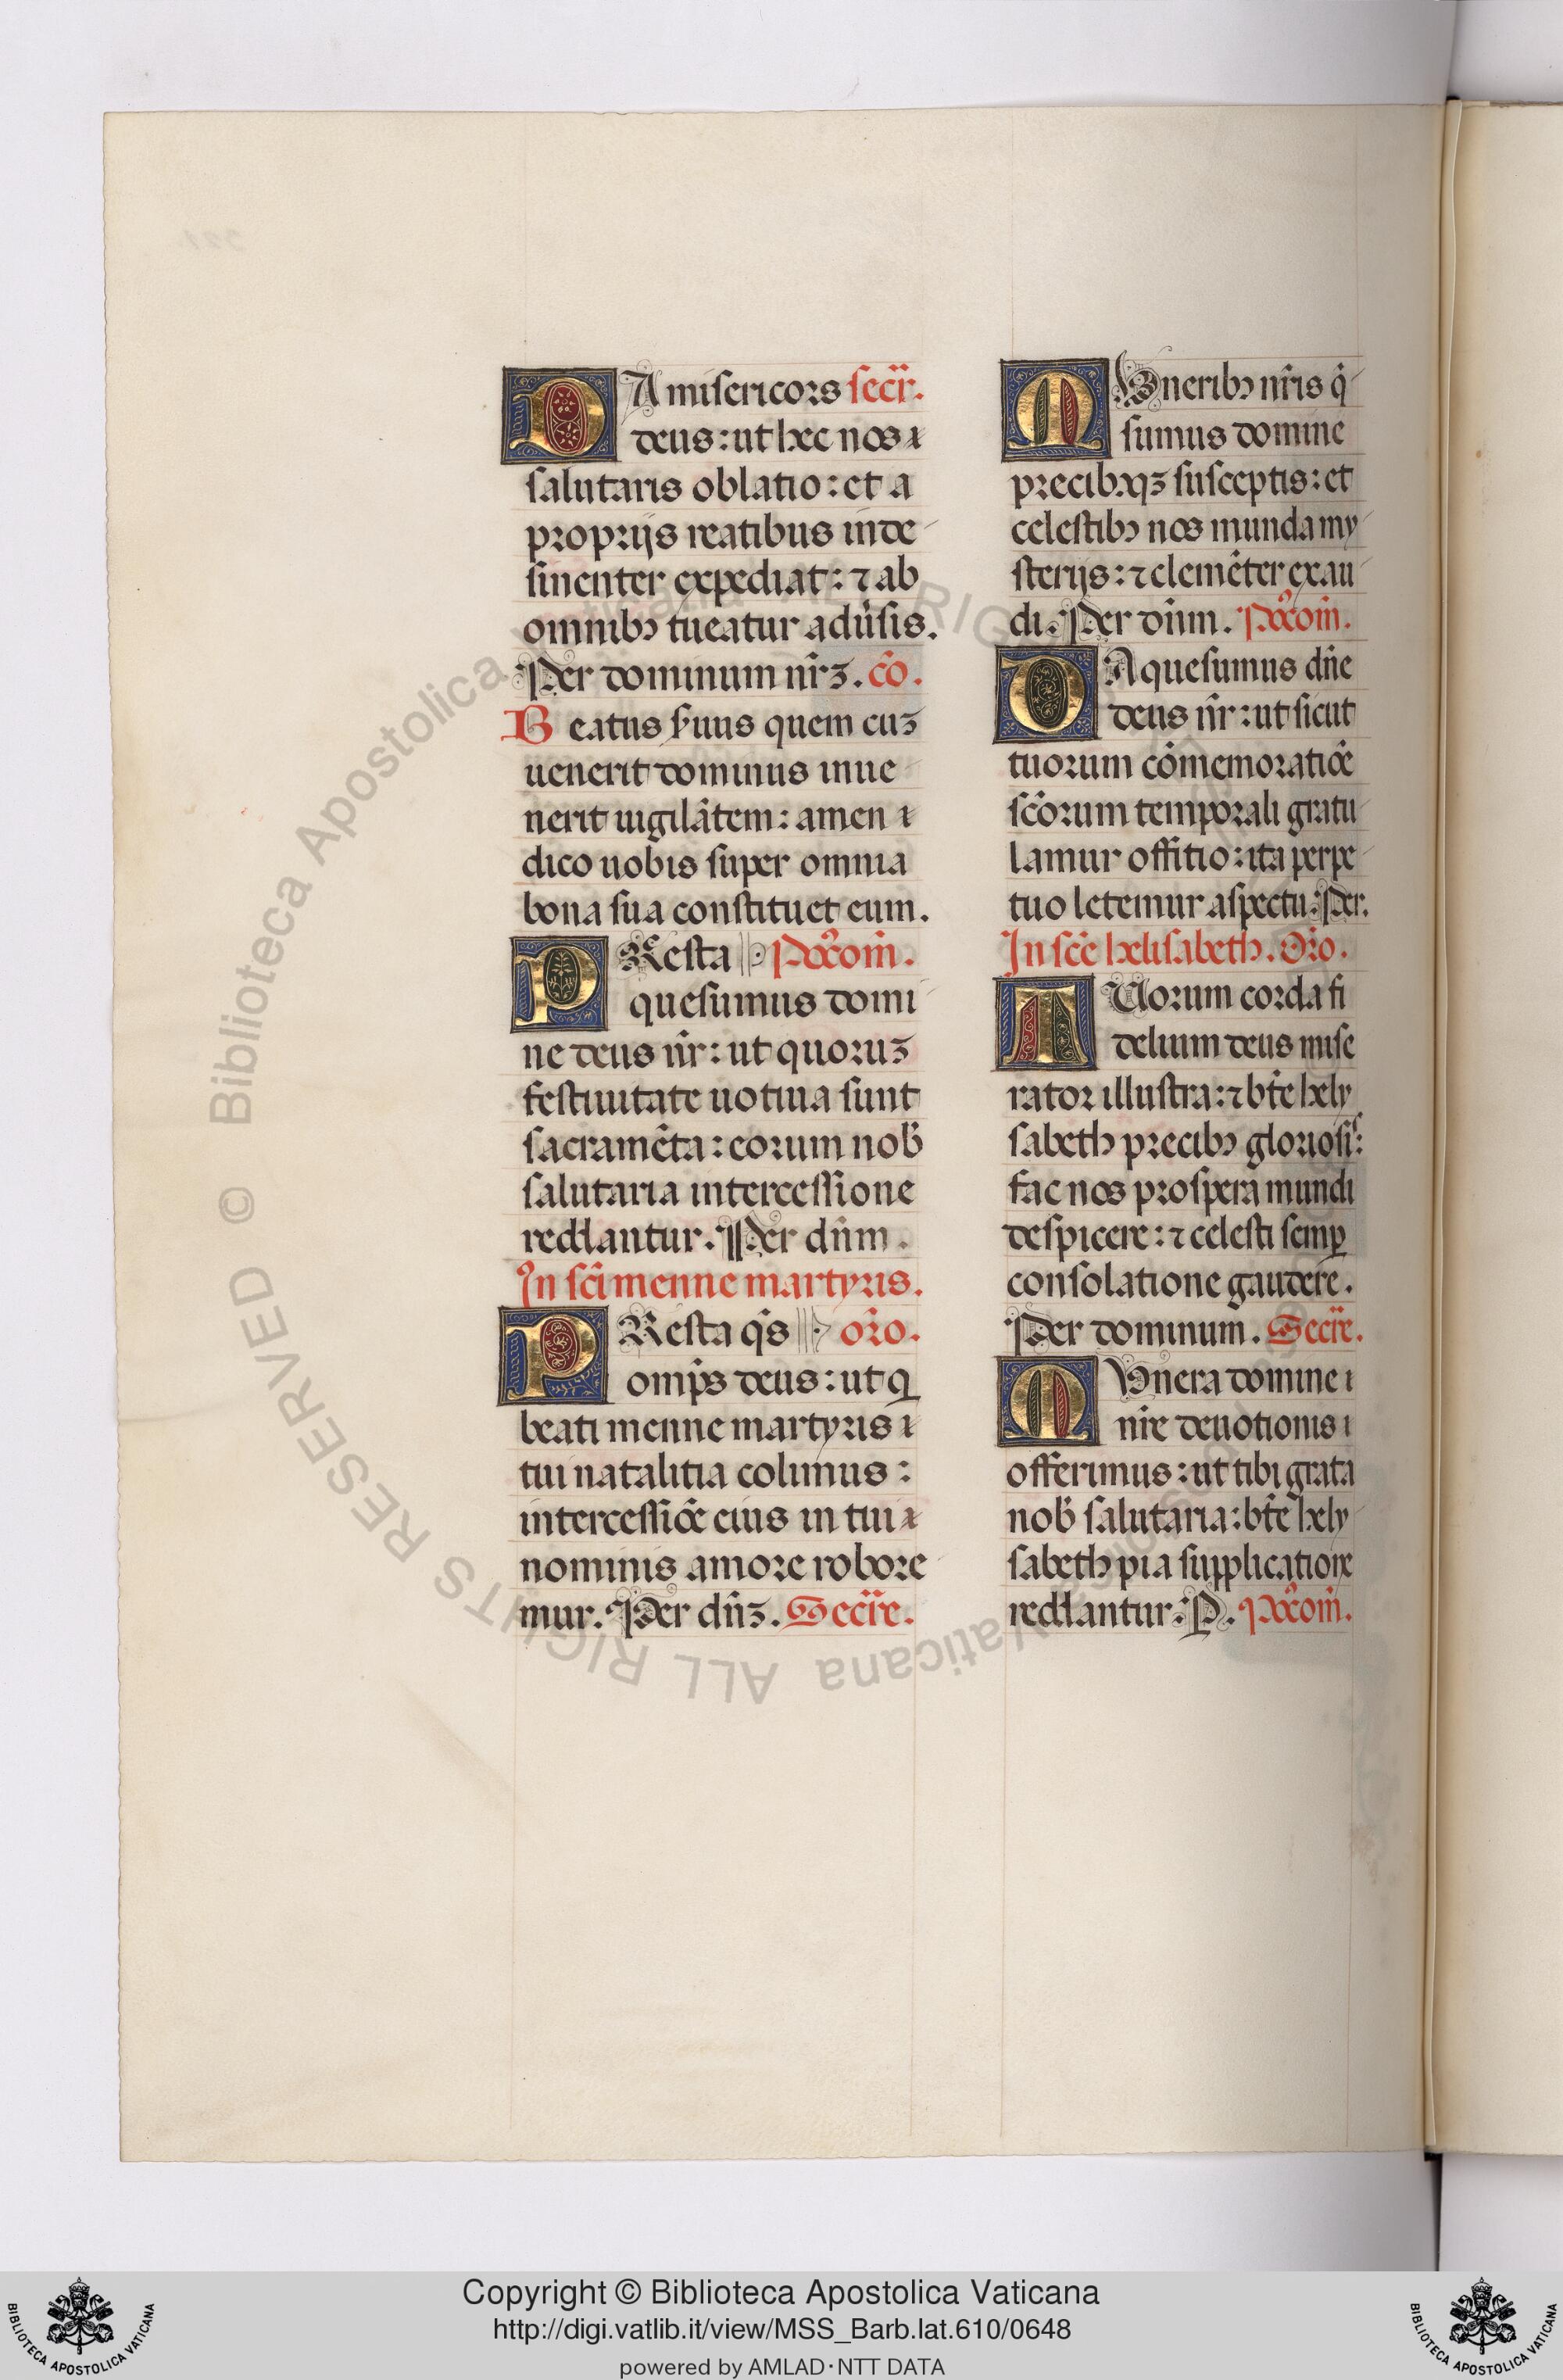 DA misericors secr̄.
deus: ut hec nos
salutaris oblatio: et a
proprijs reatibus inde
sinenter expediat: ⁊ ab
omnibꝯ tueatur adũsis.
Per dominum nr̃ꝫ. cõ.
Beatus s̃uus quem cuꝫ
uenerit dominus inue
nerit uigilãtem: amen
dico uobis super omnia
bona sua constituet eum.
PResta Pꝯcom̃.
quesumus domi
ne deus nr̃: ut quoruꝫ
festiuitate uotiua sunt
sacramẽta: eorum nob̃
salutaria intercessione
reddantur. Per dñm.
In sc̃i menne martyris.
PResta q̃s or̃o.
omp̃s deus: ut q
beati menne martyris
tui natalitia colimus:
intercessiõe eius in tui
nominis amore robore
mur. Per dñꝫ. Secr̃e.
MUneribꝯ nr̃is q̃
sumus domine
precibusqꝫ susceptis: et
celestibꝯ nos munda my
sterijs: ⁊ clemẽter exau
di. Per dñm. Pꝯcom̃.
DA quesumus dñe
deus nr̃: ut sicut
tuorum cõmemoratiõe
sc̃orum temporali gratu
lamur offitio: ita perpe
tuo letemur aspectu. Per.
In sc̃e helisabeth. Or̃o.
TUorum corda fi
delium deus mise
rator illustra: ⁊ bt̃e hely
sabeth precibꝯ gloriosis:
fac nos prospera mundi
despicere: ⁊ celesti semꝑ
consolatione gaudere.
Per dominum. Secr̃e.
MUnera domine
nr̃e deuotionis
offerimus: ut tibi grata
nob̃ salutaria: bt̃e hely
sabeth pia supplicatione
reddantur. P. Pꝯcom̃.
© Biblioteca Apostolica Vaticana ALL RIGHTS RESERVED
Copyright © Biblioteca Apostolica Vaticana
http://digi.vatlib.it/view/MSS_Barb.lat.610/0648
powered by AMLAD·NTT DATA
BIBLIOTECA APOSTOLICA VATICANA
BIBLIOTECA APOSTOLICA VATICANA